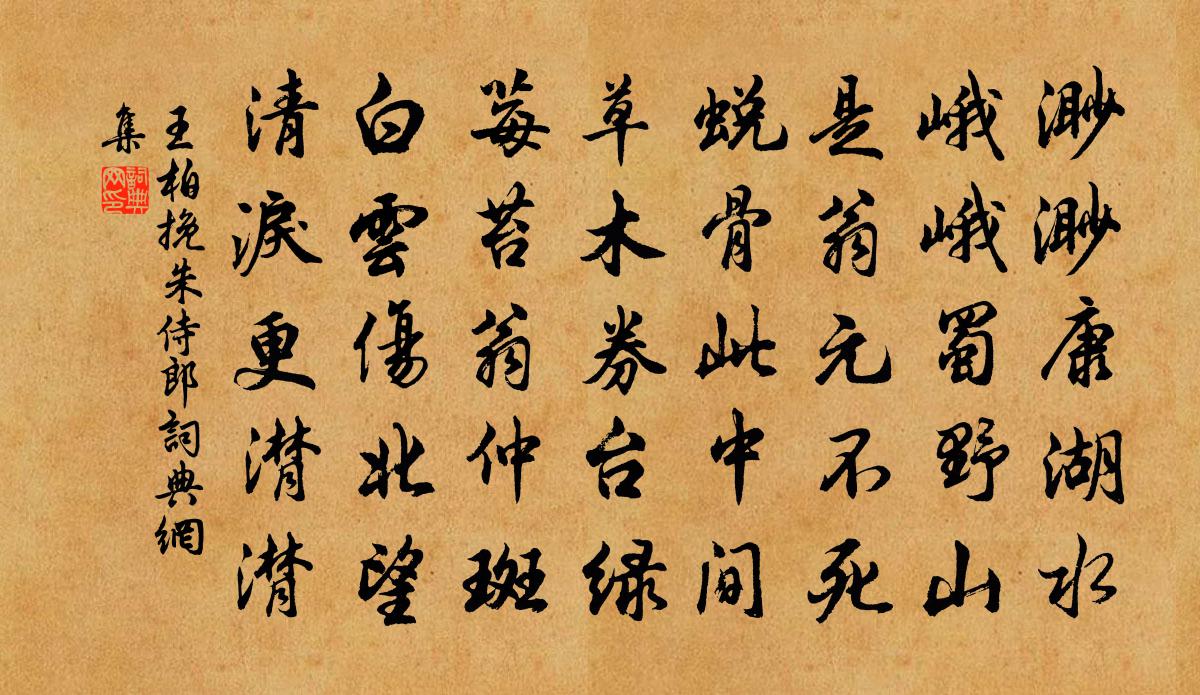 渺渺康湖水
峨峨蜀野山
是翁元不死
蜕骨此中間
草木券台緑
莓苔翁仲斑
白雲傷北望
清淚更潸潸
王柏挽朱侍郎詞典網
集
詞典網印